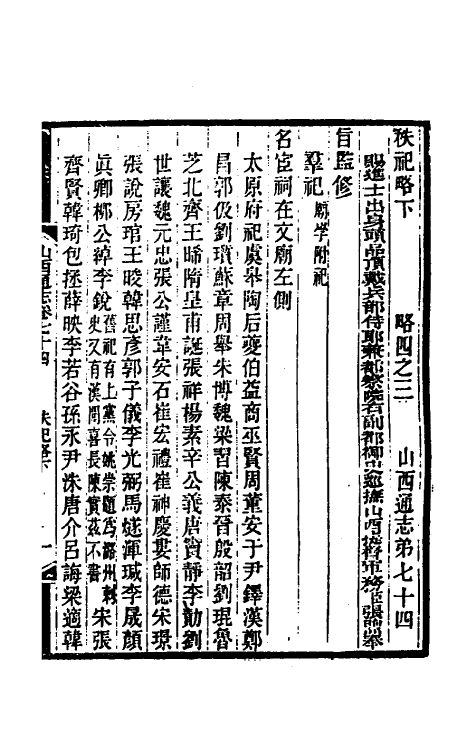 秩祀略下　略四之三　山西通志弟七十四
賜進士出身頭品頂戴兵部侍郎兼都察院右副都御史巡撫山西提督軍務臣張
旨監修
羣祀廟學附祀
名宦祠在文廟左側
太原府祀虞皋陶后夔伯益商巫賢周董安于尹鐸漢鄭
昌郭伋劉瓆蘇章周舉朱博魏梁習陳泰晉殷韶劉琨魯
芝北齊王晞隋皇甫誕張祥楊素辛公義唐竇靜李勣劉
世讓魏元忠張公謹韋安石崔宏禮崔神慶婁師德宋璟
張說房琯王晙韓思彥郭子儀李光弼馬燧渾瑊李晟顏
眞卿郗公綽李銳舊祀有上黨令姚崇題爲潞州刺史又有漢聞喜長陳實茲不書宋張
齊賢韓琦包拯薛映李若谷孫永尹洙唐介呂誨梁適韓
山西通志卷七十四　秩祀略下　一